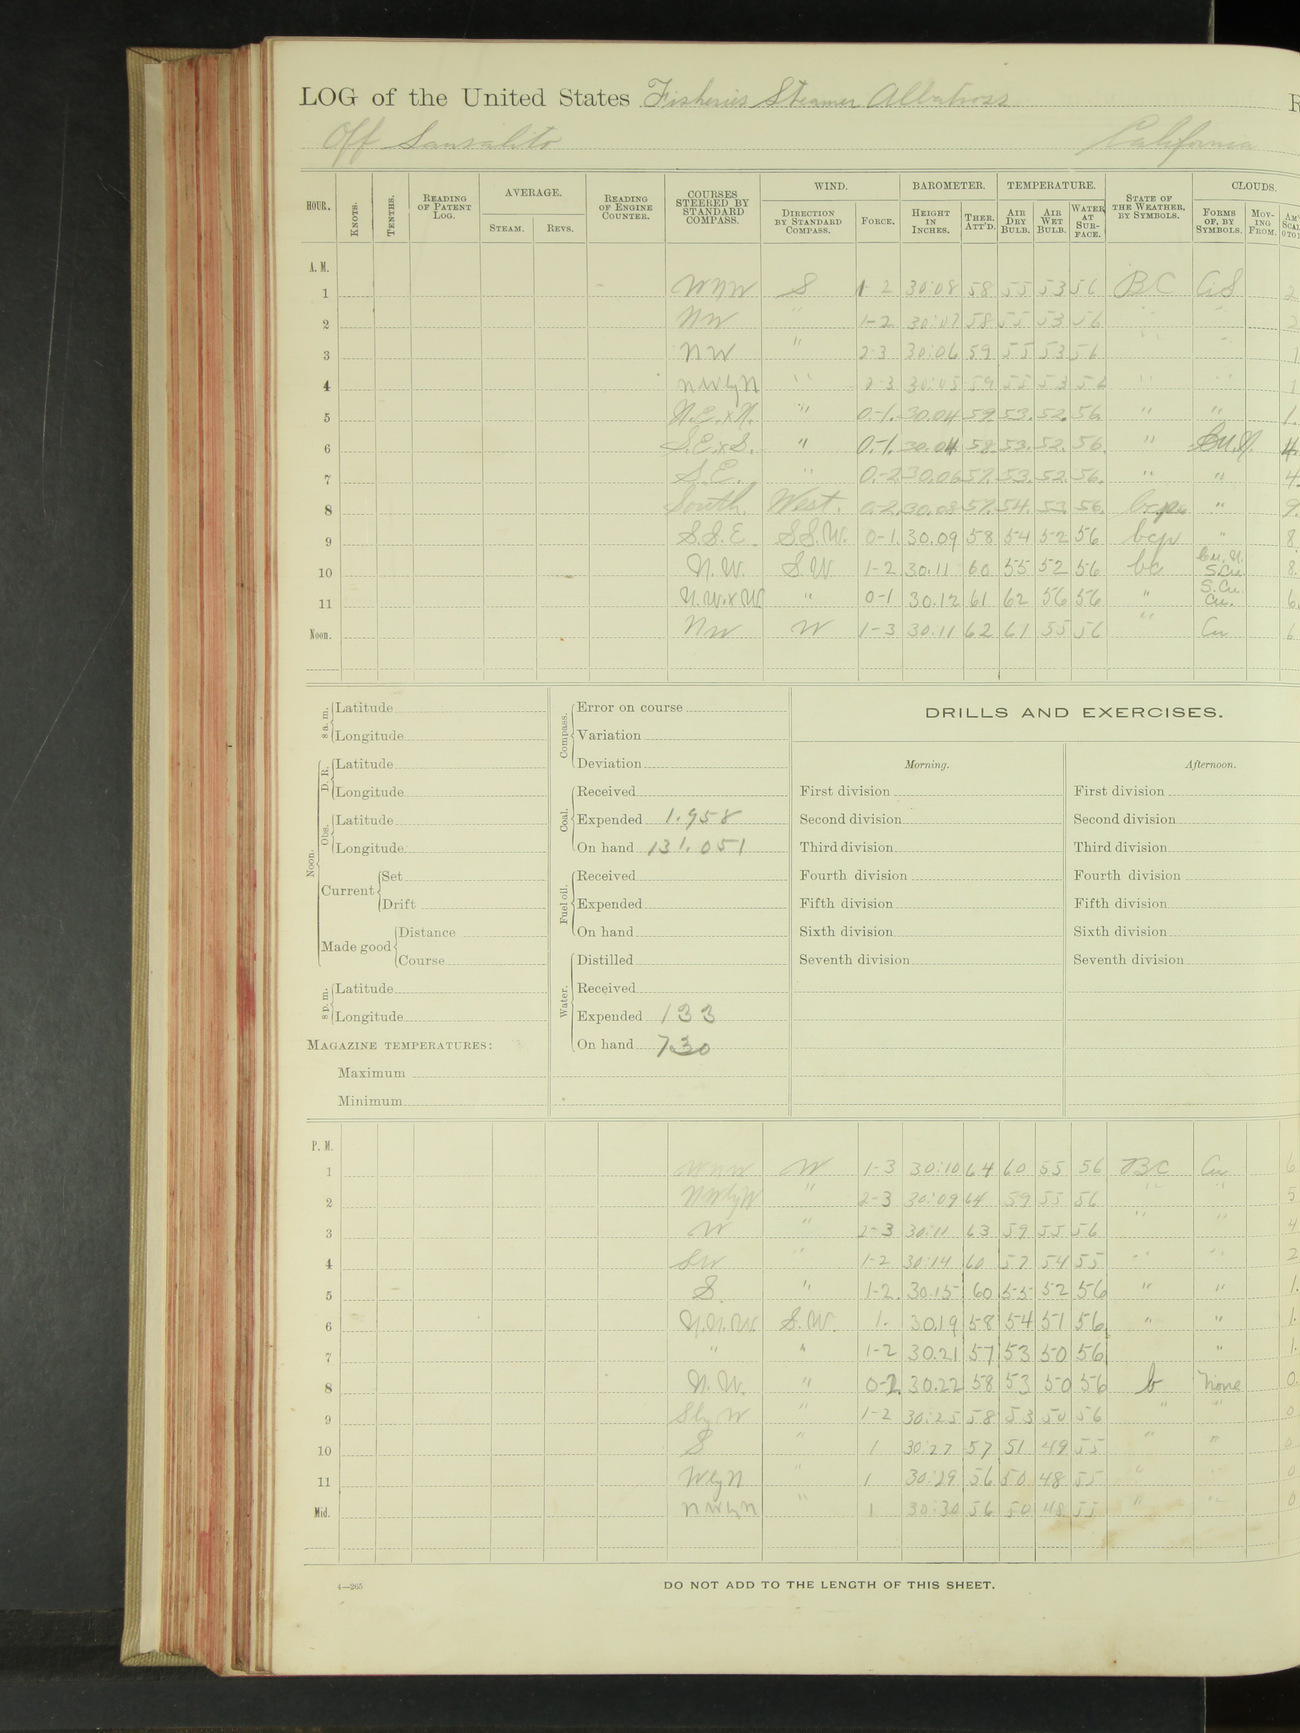 LOG of the United States Fisheries Steamer Albatross
Off Sausalito California
HOUR. KNOTS. TENTHS. READING OF PATENT LOG. AVERAGE. STEAM. REVS. READING OF ENGINE COUNTER. COURSES STEERED BY STANDARD COMPASS. WIND. DIRECTION BY STANDARD COMPASS. FORCE. BAROMETER. HEIGHT IN INCHES. THER. ATT'D. TEMPERATURE. AIR DRY BULB. AIR WET BULB. WATER AT SURFACE. STATE OF THE WEATHER, BY SYMBOLS. CLOUDS. FORMS OF, BY SYMBOLS. MOVING FROM.
A. M.
1 WNW S 1-2 30:08 58 55 53 56 BC 2
2 NW " 1-2 30:07 58 55 53 56 " " 2
3 NW " 2-3 30:06 59 55 53 56 " " 1
4 NWbyN " 2-3 30:05 59 55 53 56 " " 1
5 N.E.xN. " 0.-1. 30.04 59. 53. 52. 56. " " 1.
6 S.E.xS. " 0.-1. 30.04 58. 53. 52. 56. " Cu.N. 4.
7 S.E. " 0.-2 30.06 57. 53. 52. 56. " " 4.
8 South. West. 0-2. 30.08 57. 54. 53. 56. " 9.
9 S.S.E. S.S.W. 0-1. 30.09 58 54 52 56 bcp " 8
10 N.W. S.W 1-2 30.11 60 55 52 56 bc Cu.N. S.Cu. 8.
11 N.W.xW. " 0-1 30.12 61 62 56 56 " S.Cu. Cu. 6.
Noon. NW W 1-3 30.11 62 61 55 56 " Cu 6
8 a. m. Latitude
Longitude
Noon. D. R. Latitude
Longitude
Obs. Latitude
Longitude
Current Set
Drift
Made good Distance
Course
8 p. m. Latitude
Longitude
MAGAZINE TEMPERATURES:
Maximum
Minimum
Compass. Error on course
Variation
Deviation
Coal. Received
Expended 1.958
On hand 131.051
Fuel oil. Received
Expended
On hand
Water. Distilled
Received
Expended 133
On hand 730
DRILLS AND EXERCISES.
Morning. Afternoon.
First division First division
Second division Second division
Third division Third division
Fourth division Fourth division
Fifth division Fifth division
Sixth division Sixth division
Seventh division Seventh division
P. M.
1 WNW W 1-3 30:10 64 60 55 56 BC Cu 6
2 NWbyW " 2-3 30:09 64 59 55 56 " " 5
3 W " 2-3 30:11 63 59 55 56 " " 4
4 SW " 1-2 30:14 60 57 54 55 " " 2
5 S. " 1-2. 30.15 60 55 52 56 " " 1.
6 N.N.W. S.W. 1. 30.19 58 54 51 56 " " 1.
7 " " 1-2 30.21 57 53 50 56 " 1.
8 N.W. " 0-2 30.22 58 53 50 56 b None 0.
9 SbyW " 1-2 30:25 58 53 50 56 " " 0
10 S " 1 30:27 57 51 49 55 " " 0
11 WbyN " 1 30:29 56 50 48 55 " 0
Mid. NWbyN " 1 30:30 56 50 48 55 " " 0
4—265 DO NOT ADD TO THE LENGTH OF THIS SHEET.